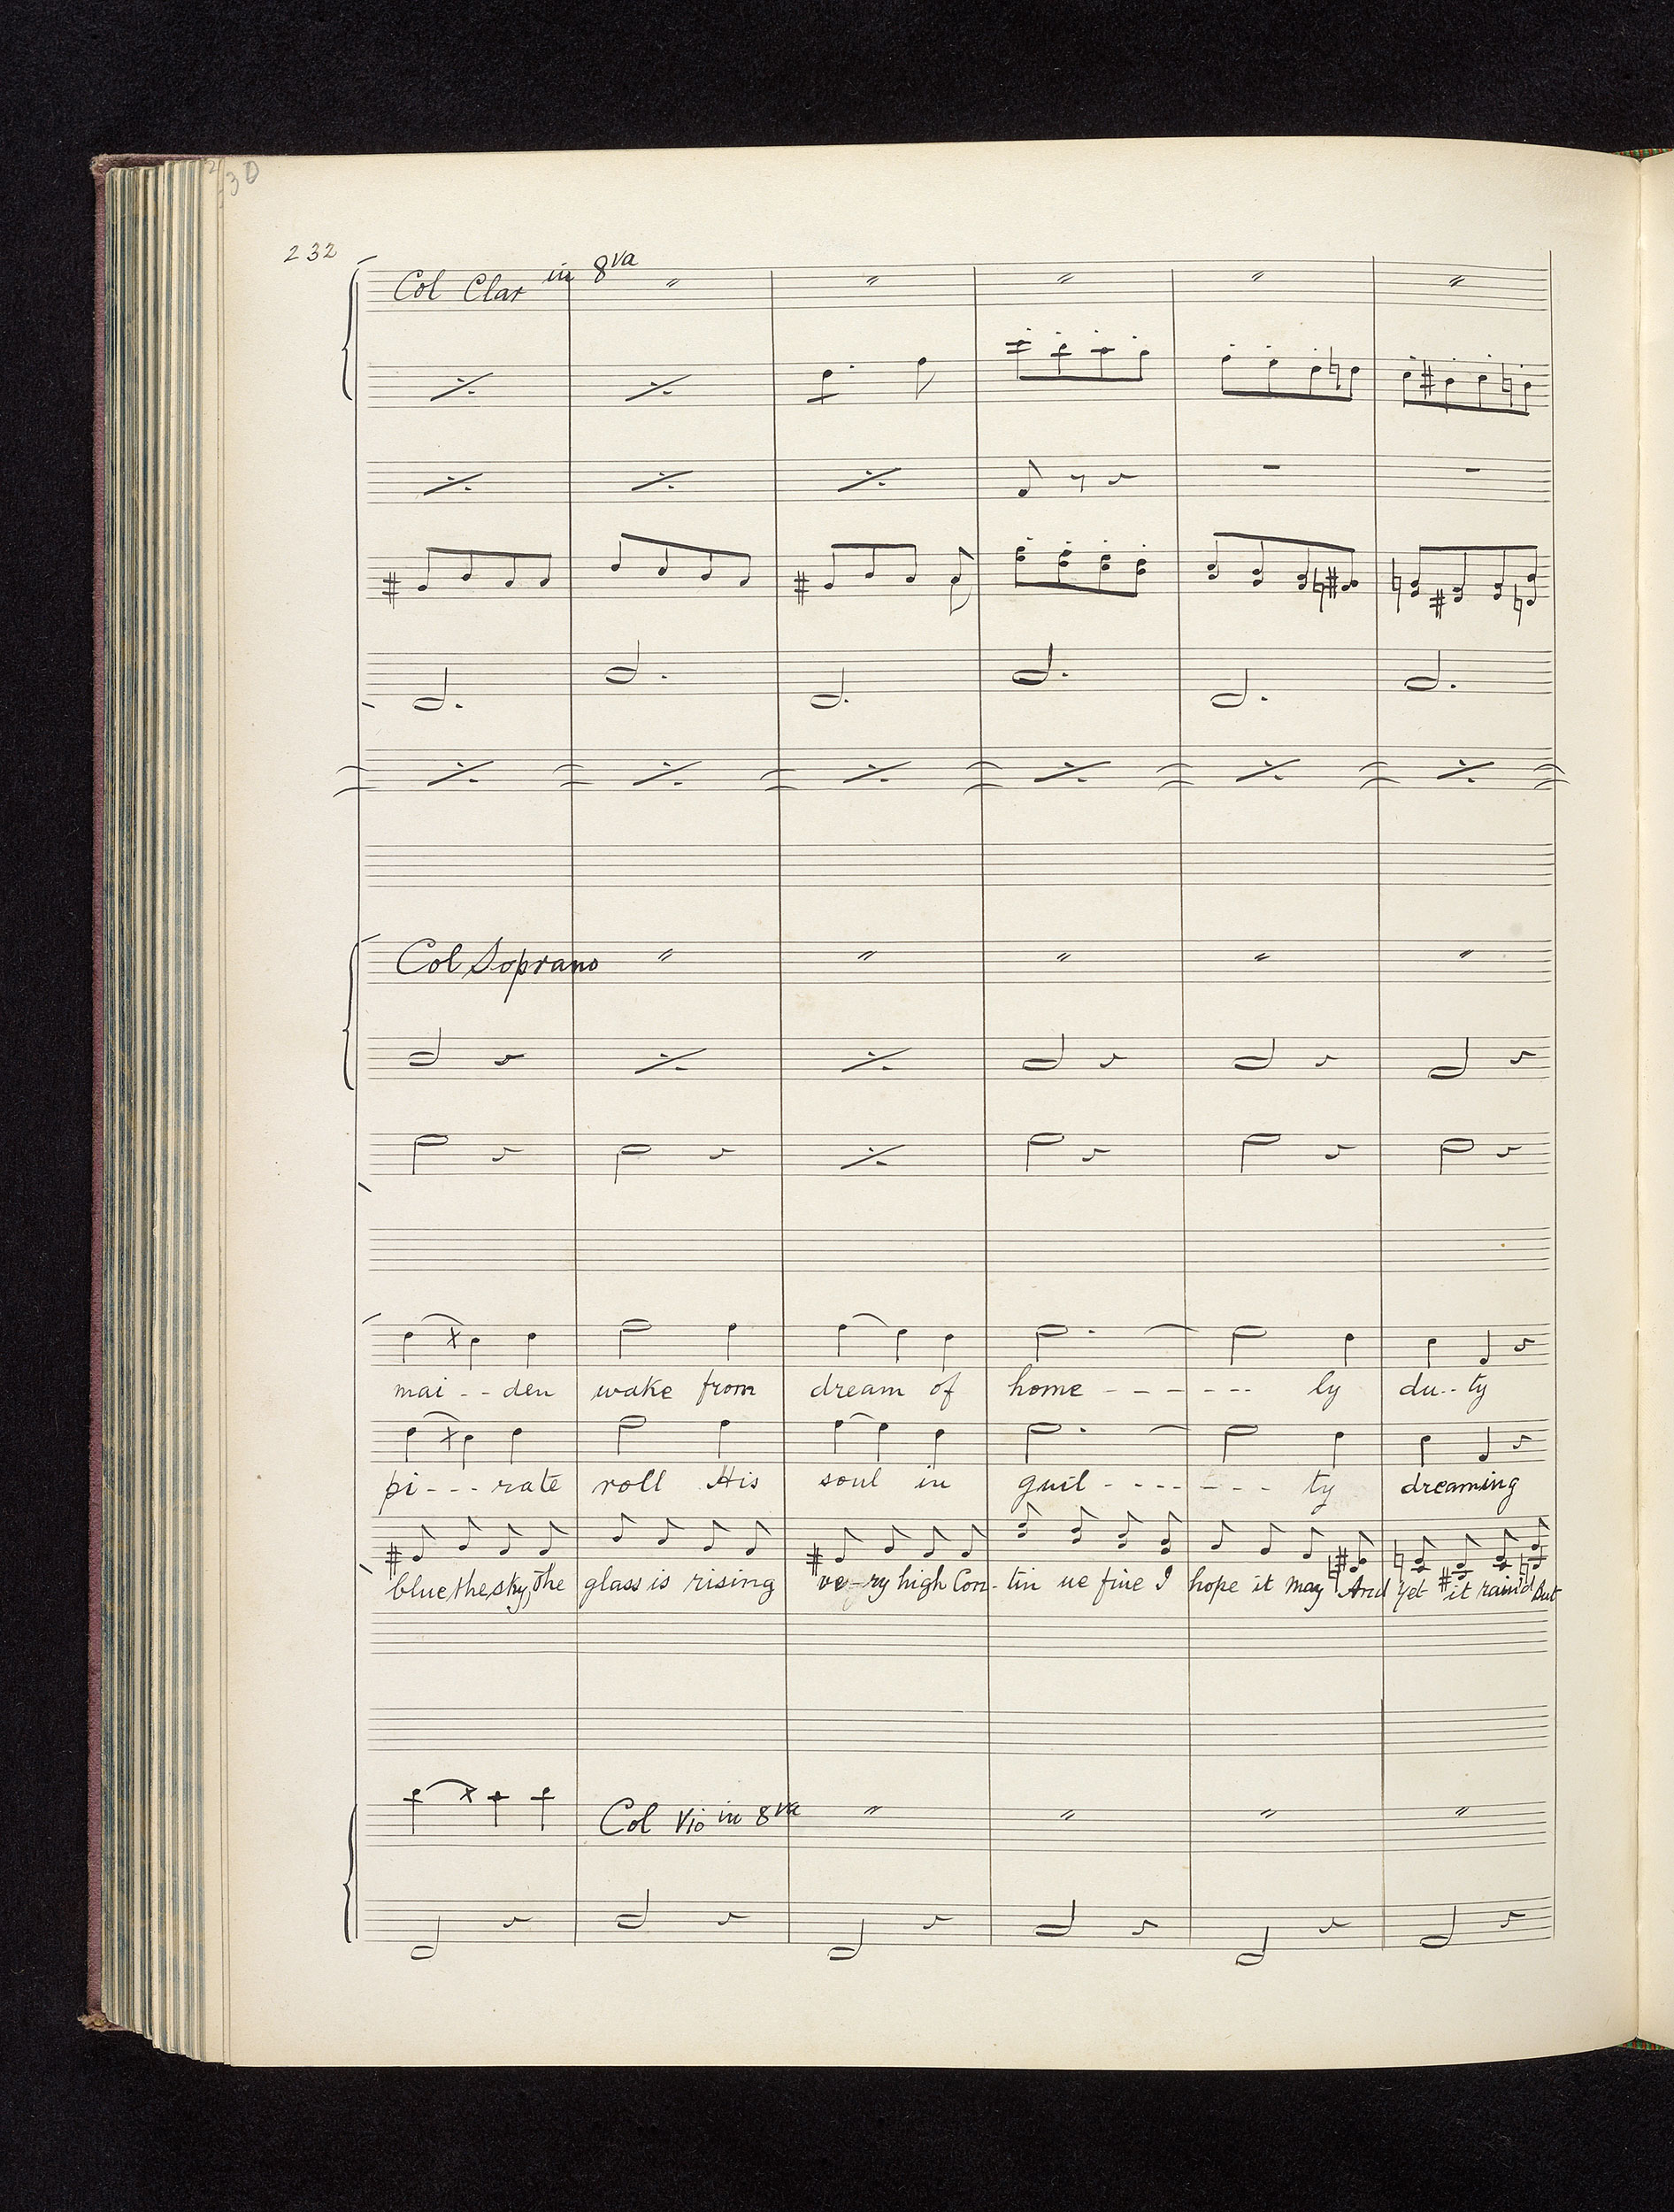 230
232
Col Clar in 8va
Col Soprano
mai - - den wake from dream of home - - - - - - ly du - - ty
pi - - - rate roll His soul in guil - - - - - - - ty dreaming
blue the sky, The glass is rising ve - ry high Con - tin ue fine I hope it may And yet it rain'd But
Col Vio in 8va